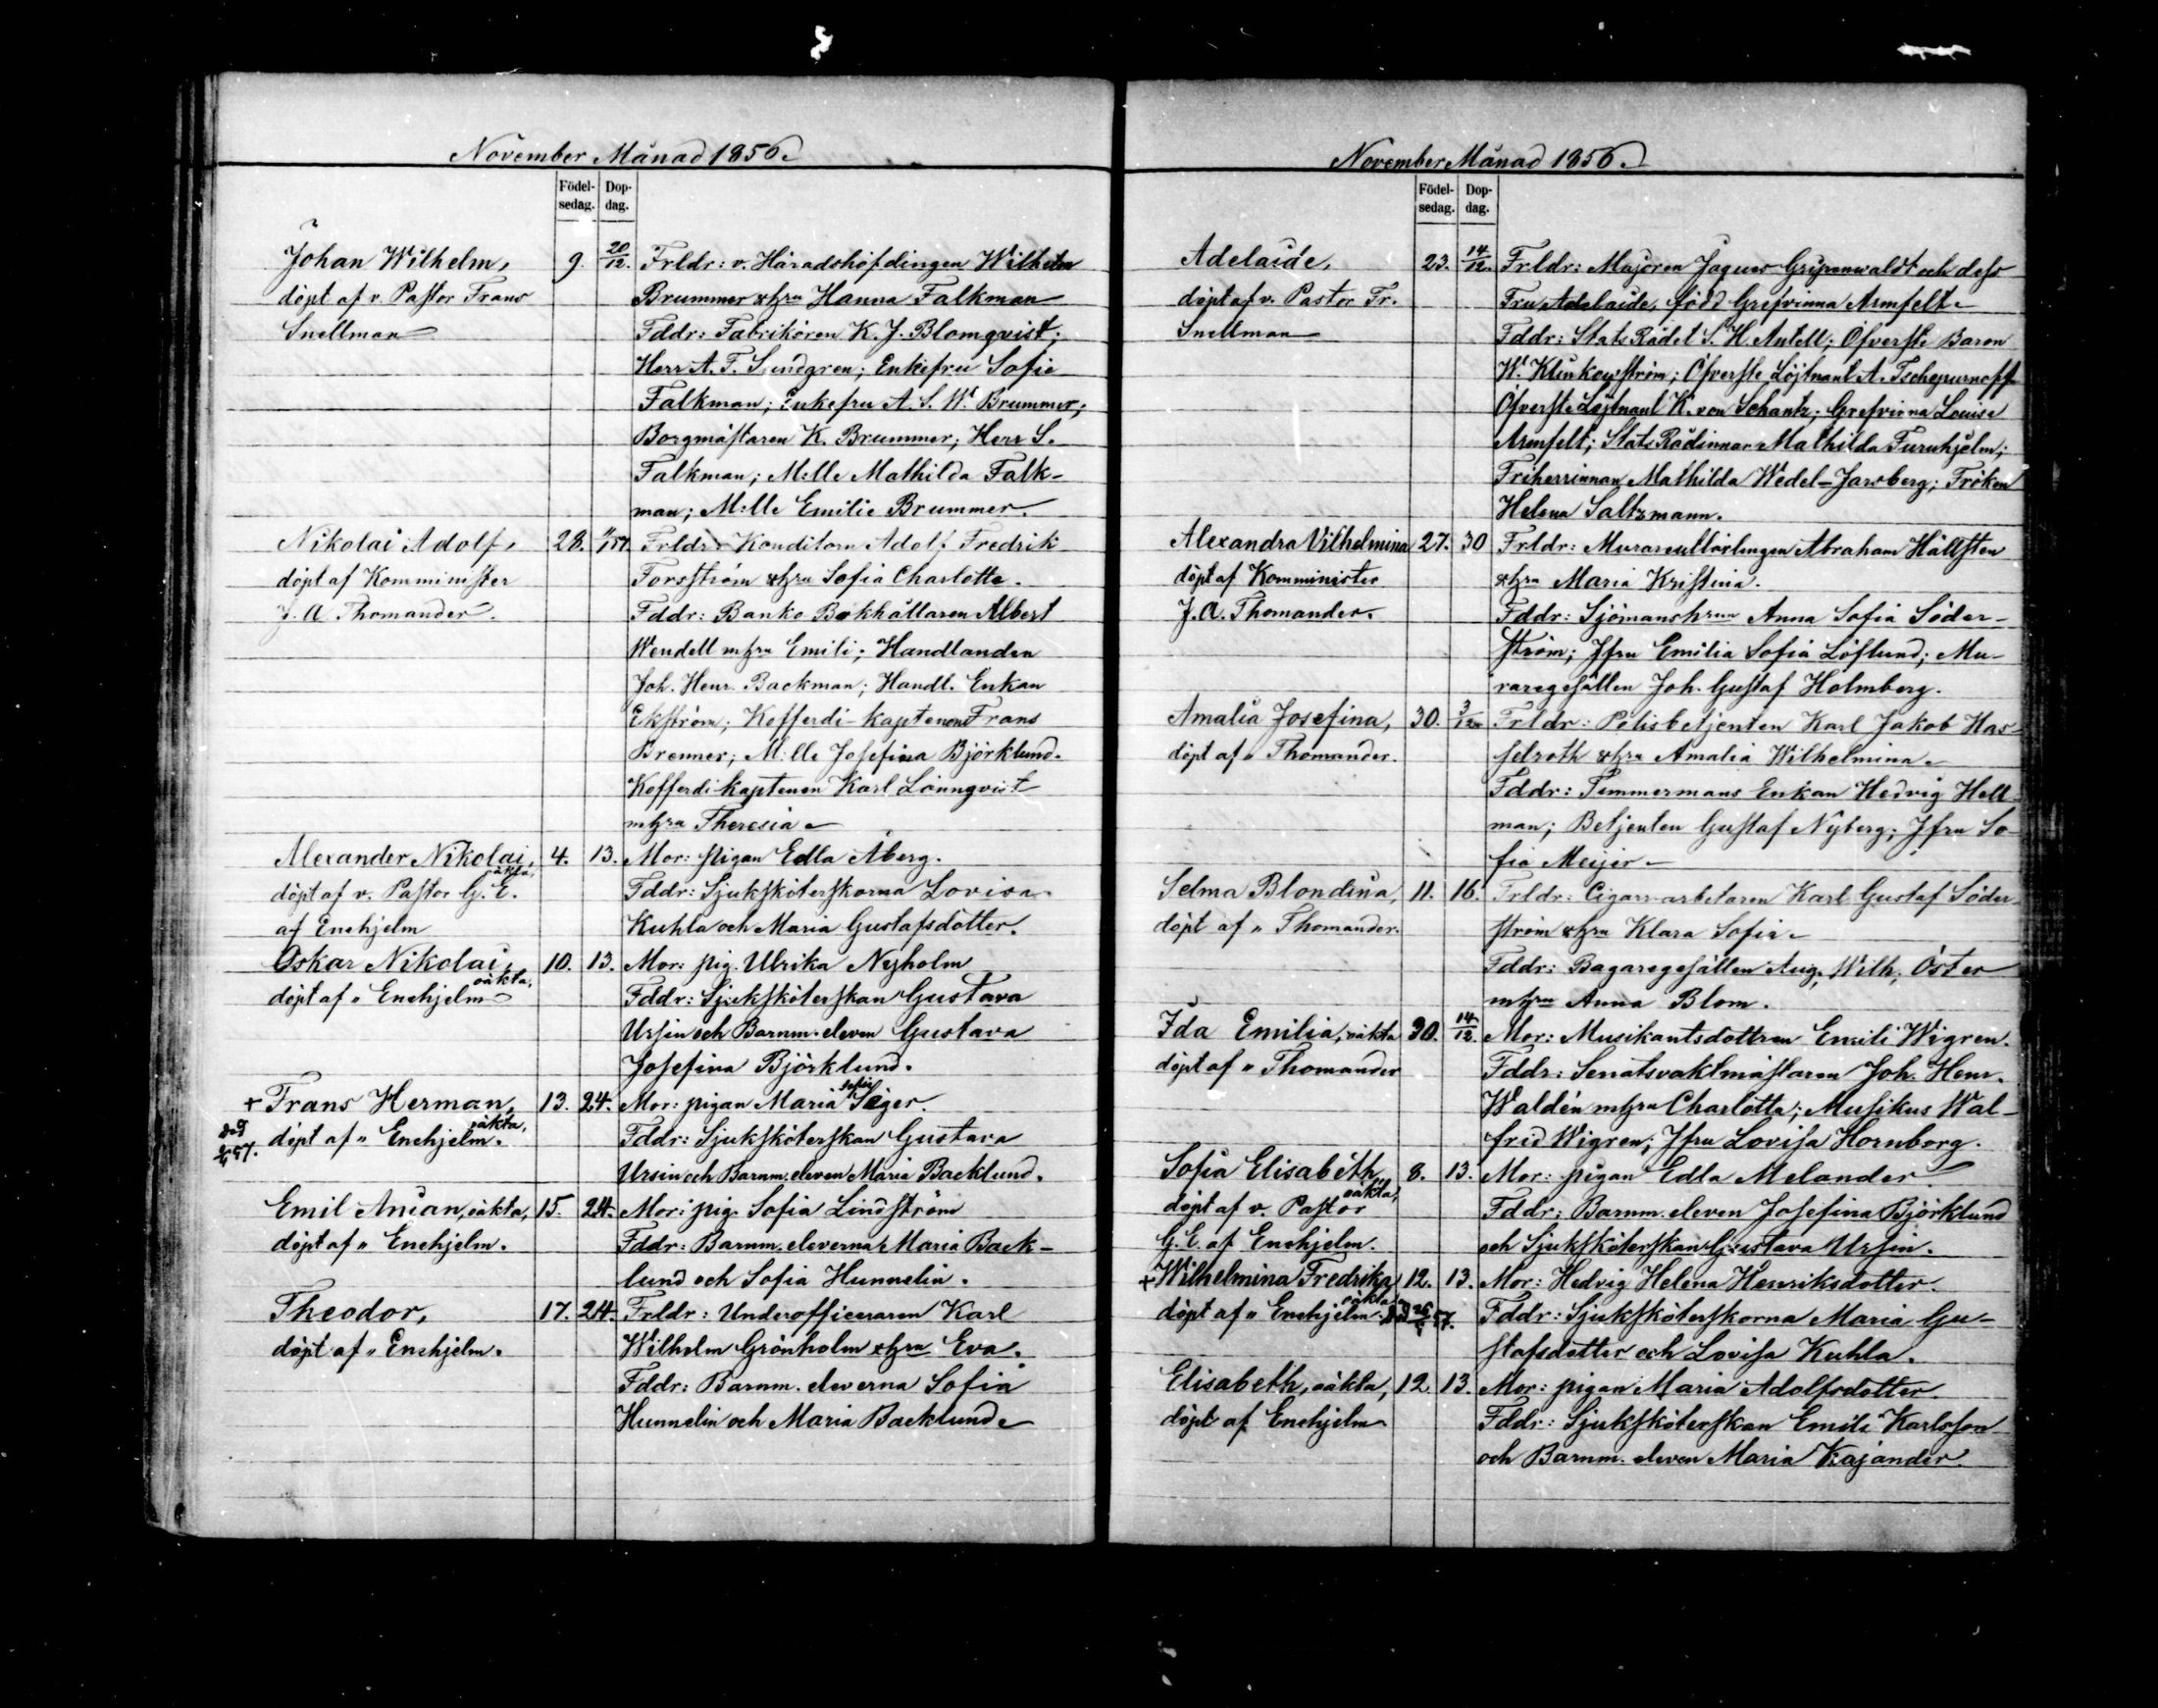 November Månad 1856.
Födel- Dop-
sedag. dag.
Johan Wilhelm, 9. 20/12. Frldr: v. Häradshöfdingen Wilhelm
döpt af v. Pastor Frans Brummer o hru Hanna Falkman
Snellman Fddr: Fabrikören K. J. Blomqvist;
Herr A. F. Sundgren; Enkefru Sofie
Falkman; Enkefru A. S. W. Brummer;
Borgmästaren K. Brummer; Herr S.
Falkman; M:lle Mathilda Falk-
man; M:lle Emilie Brummer.
Nikolai Adolf, 28. Frldr: Konditorn Adolf Fredrik
döpt af Komminister Forsström o hru Sofia Charlotte.
J. A. Thomander. Fddr: Banko Bokhållaren Albert
Wendell m hru Emili; Handlanden
Joh. Henr. Backman; Handl. Enkan
Ekström; Kofferdi-kaptenen Frans
Brenner; M:lle Josefina Björklund.
Kofferdi kaptenen Karl Lönnqvist
m hru Theresia
Alexander Nikolai, oäkta, 4. 13. Mor: pigan Edla Åberg.
döpt af v. Pastor G. E. Fddr: Sjuksköterskorna Lovisa
af Enehjelm Kuhla och Maria Gustafsdotter.
Oskar Nikolai, oäkta, 10. 13. Mor: pig. Ulrika Nyholm
döpt af " Enehjelm Fddr: Sjuksköterskan Gustava
Ursin och Barnm. eleven Gustava
Josefina Björklund.
+ Frans Herman, oäkta, 13. 24. Mor: pigan Maria Sofia Seger.
död 57. döpt af " Enehjelm. Fddr: Sjuksköterskan Gustava
Ursin och Barnm. eleven Maria Backlund.
Emil Anian, oäkta, 15. 24. Mor: pig. Sofia Lindström
döpt af " Enehjelm. Fddr: Barnm. eleverna Maria Back-
lund och Sofia Hunnelin.
Theodor, 17. 24. Frldr: Underofficeraren Karl
döpt af " Enehjelm. Wilhelm Grönholm o hru Eva.
Fddr: Barnm. eleverna Sofia
Hunnelin och Maria Backlund
November Månad 1856.
Födel- Dop-
sedag. dag.
Adelaide, 23. 14/12. Frldr: Majoren Jaques Gripenwaldt och dess
döpt af v. Pastor Fr. Fru Adelaide, född Grefvinna Armfelt
Snellman Fddr: Stats Rådet S. H. Antell; Öfverste Baron
W. Klinkowström; Öfverste Löjtnant A. Tschepurnoff
Öfverste Löjtnant K. von Schantz; Grefvinna Louise
Armfelt; Stats Rådinnan Mathilda Furuhjelm;
Friherrinnan Mathilda Wedel-Jarsberg; Fröken
Helena Saltzmann.
Alexandra Vilhelmina 27. 30 Frldr: Murarelärlingen Abraham Hällsten
döpt af Komminister o hru Maria Kristina.
J. A. Thomander. Fddr: Sjömanshrun Anna Sofia Söder-
ström; Jfru Emilia Sofia Löflund; Mu-
raregesällen Joh. Gustaf Holmberg.
Amalia Josefina, 30. 3/12 Frldr: Polisbetjenten Karl Jakob Has-
döpt af " Thomander. selroth o hru Amalia Wilhelmina
Fddr: Timmermans Enkan Hedvig Hell-
man; Betjenten Gustaf Nyberg; Jfru So-
fia Meijer
Selma Blondina, 11. 16. Frldr: Cigarr-arbetaren Karl Gustaf Söder-
döpt af " Thomander. ström o hru Klara Sofia
Fddr: Bagaregesällen Aug. Wilh. Öster
m hru Anna Blom.
Ida Emilia, oäkta 30. 14/12. Mor: Musikantsdottren Emili Wigren.
döpt af " Thomander Fddr: Senatsvaktmästaren Joh. Henr.
Waldén m hru Charlotta; Musikus Wal-
frid Wigren; Jfru Lovisa Hornborg.
Sofia Elisabeth, oäkta, 8. 13. Mor: pigan Edla Melander.
döpt af v. Pastor Fddr: Barnm. eleven Josefina Björklund
G. E. af Enehjelm. och Sjuksköterskan Gustava Ursin.
+ Wilhelmina Fredrika, oäkta 12. 13. Mor: Hedvig Helena Henriksdotter.
döpt af " Enehjelm. 57. Fddr: Sjuksköterskorna Maria Gu-
stafsdotter och Lovisa Kuhla.
Elisabeth, oäkta, 12. 13. Mor: pigan Maria Adolfsdotter.
döpt af Enehjelm Fddr: Sjuksköterskan Emili Karlsson
och Barnm. eleven Maria Kajander.